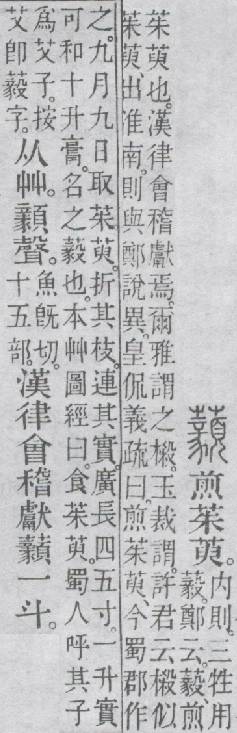 藙煎茱萸。內則。三牲用
藙。鄭云。藙、煎
茱萸也。漢律會稽獻焉。爾雅謂之樧。玉裁謂。許君云樧似
茱萸、出淮南。則與鄭說異。皇侃義疏曰。煎茱萸、今蜀郡作
之。九月九日取茱萸。折其枝。連其實。廣長四五寸。一升實
可和十升膏。名之藙也。本艸圖經曰。食茱萸。蜀人呼其子
爲艾子。按
艾卽藙字。从艸。顡聲。魚旣切。十五部。漢律會稽獻藙一斗。